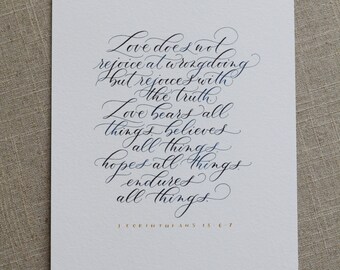 Love does not
rejoice at wrongdoing
but rejoices with
the truth
Love bears all
things believes
all things
hopes all things
endures
all things.
1 CORINTHIANS 13 6-7